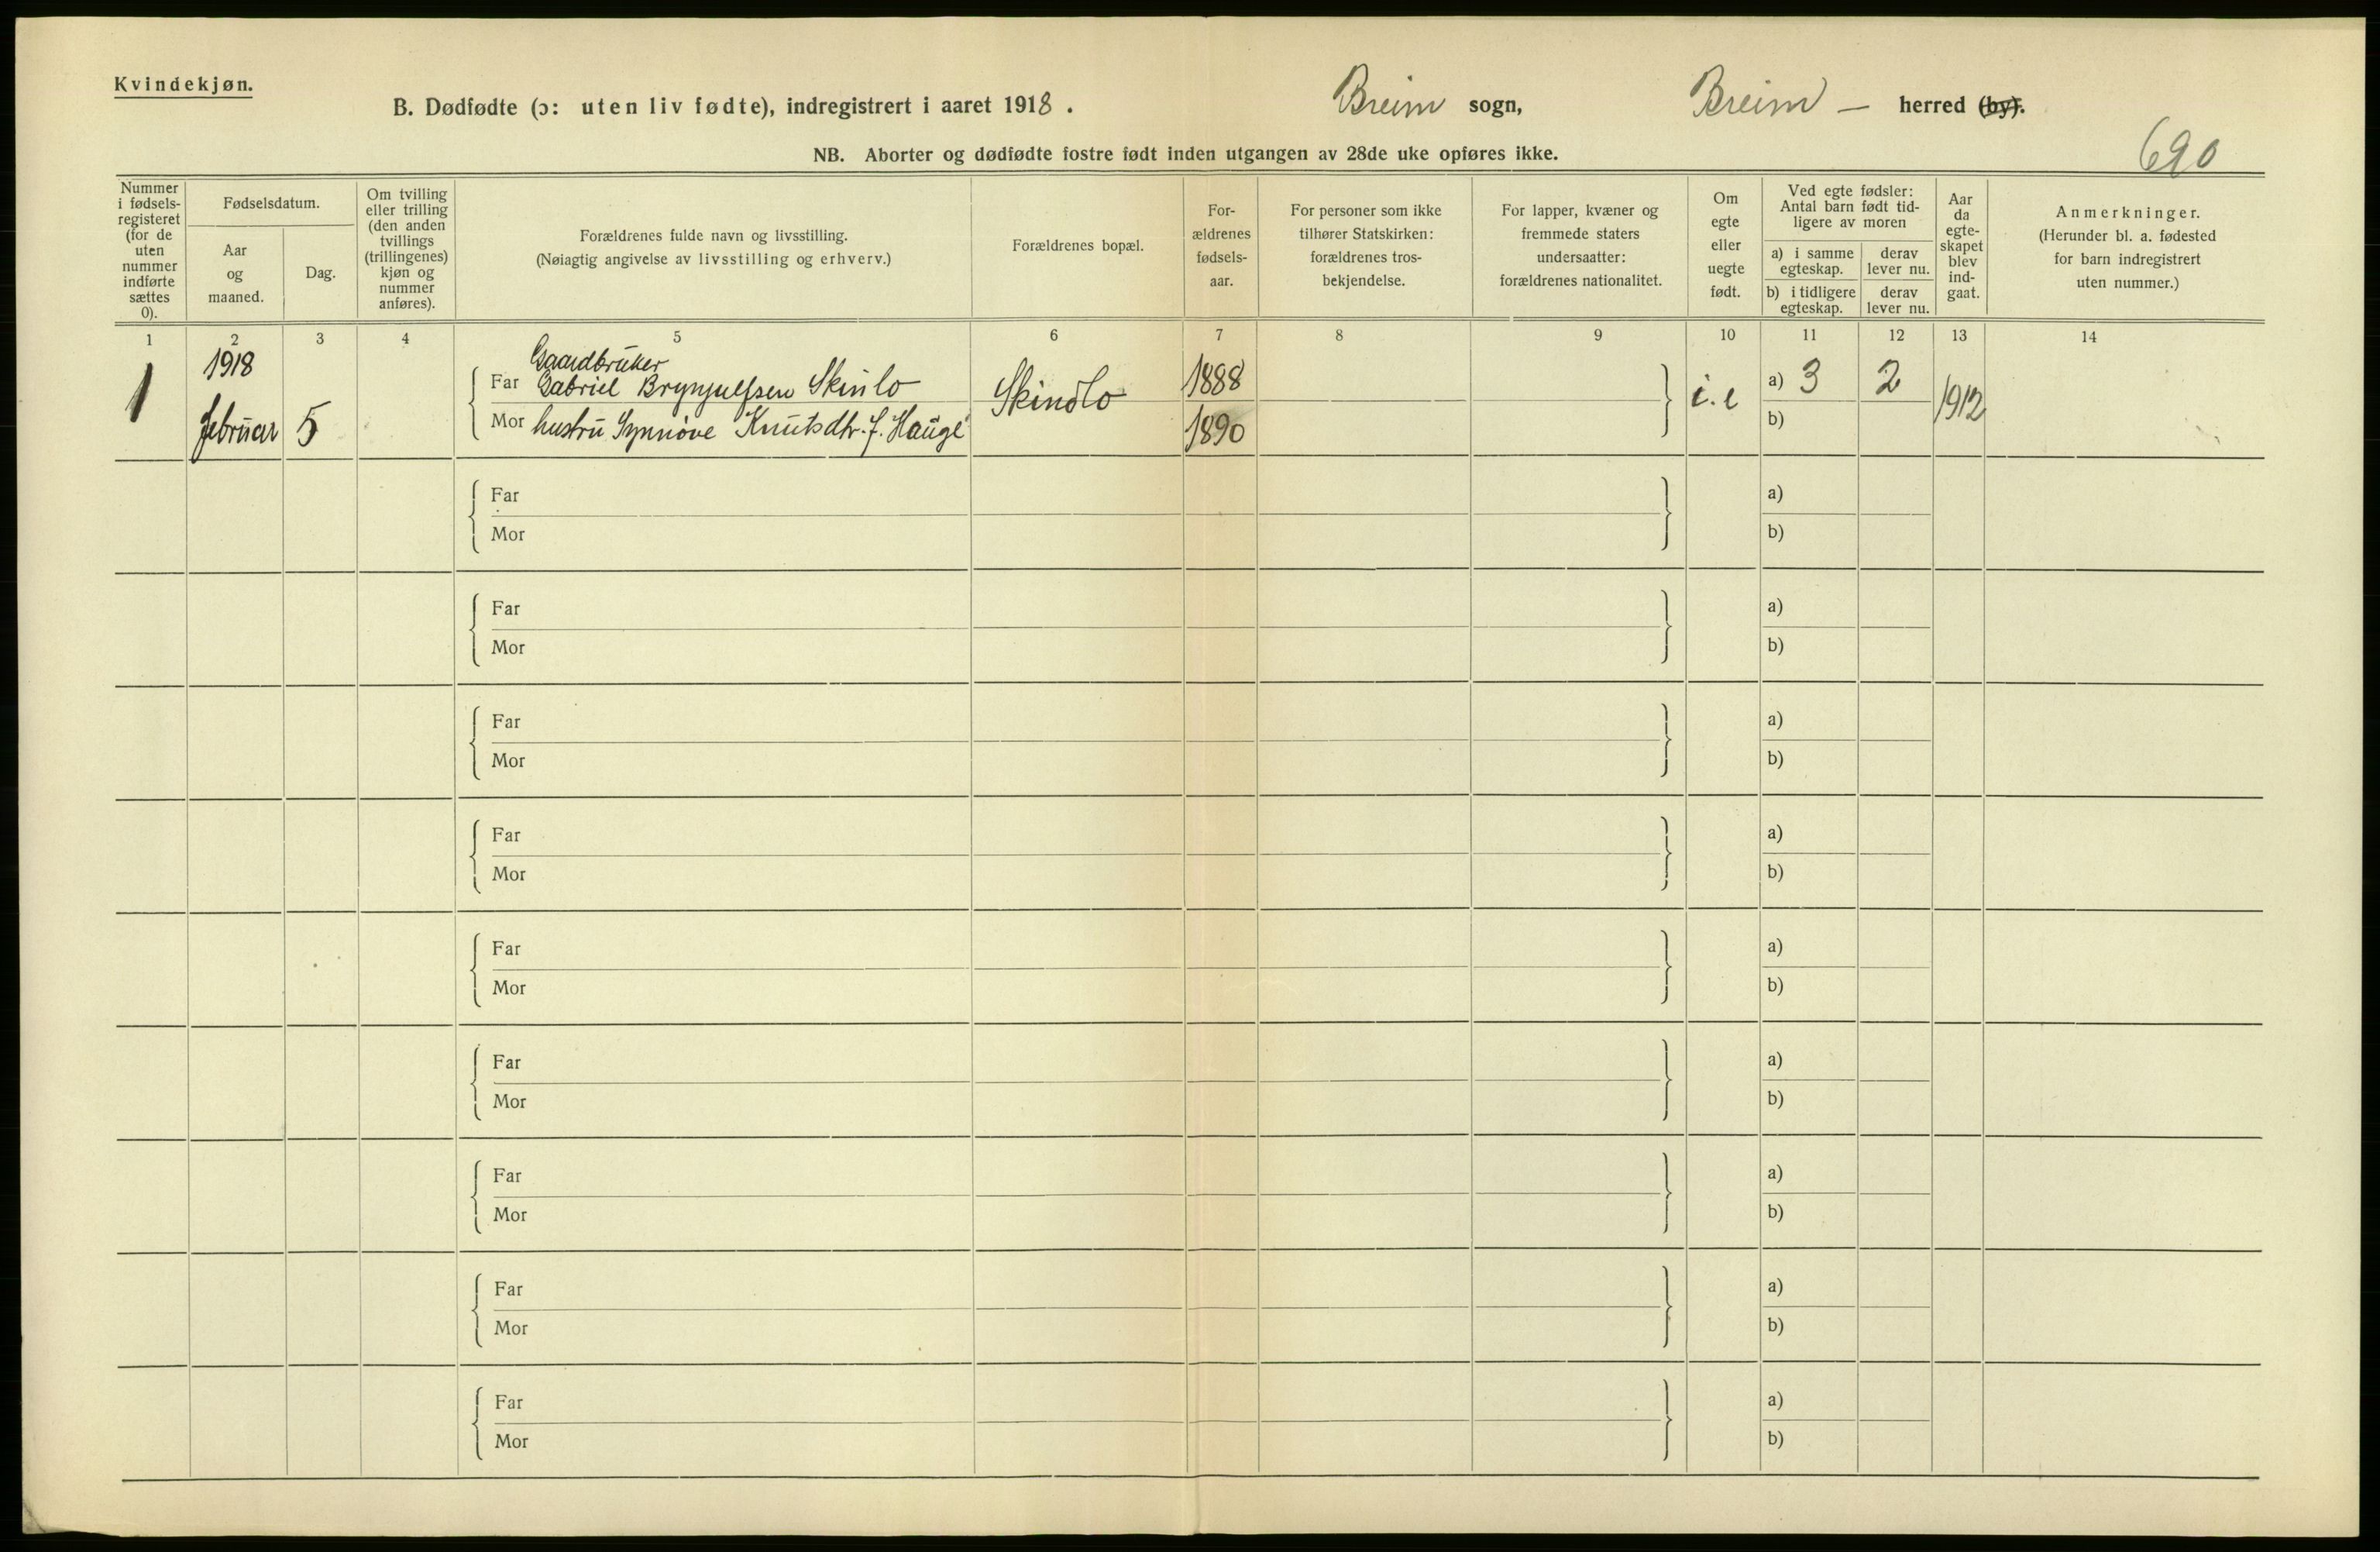 Kvindekjøn.
B. Dødfødte (ɔ: uten liv fødte), indregistrert i aaret 1918. Breim sogn, Breim — herred (by).
NB. Aborter og dødfødte fostre født inden utgangen av 28de uke opføres ikke.
690
Nummer i fødsels-registeret (for de uten nummer indførte sættes 0).
Fødselsdatum.
Aar og maaned.
Dag.
Om tvilling eller trilling (den anden tvillings (trillingenes) kjøn og nummer anføres).
Forældrenes fulde navn og livsstilling.
(Nøiagtig angivelse av livsstilling og erhverv.)
Forældrenes bopæl.
For-ældrenes fødsels-aar.
For personer som ikke tilhører Statskirken: forældrenes tros-bekjendelse.
For lapper, kvæner og fremmede staters undersaatter: forældrenes nationalitet.
Om egte eller uegte født.
Ved egte fødsler: Antal barn født tid-ligere av moren
a) i samme egteskap.
derav lever nu.
b) i tidligere egteskap.
derav lever nu.
Aar da egte-skapet blev ind-gaat.
Anmerkninger.
(Herunder bl. a. fødested for barn indregistrert uten nummer.)
1 2 3 4 5 6 7 8 9 10 11 12 13 14
1 1918 Februar 5
Gaardbruker
Far Gabriel Brynjulfsen Skinlo Skindlo 1888 i.e a) 3 2 1912
Mor hustru Synnøve Knutsdtr. f. Hauge 1890 b)
Far a)
Mor b)
Far a)
Mor b)
Far a)
Mor b)
Far a)
Mor b)
Far a)
Mor b)
Far a)
Mor b)
Far a)
Mor b)
Far a)
Mor b)
Far a)
Mor b)